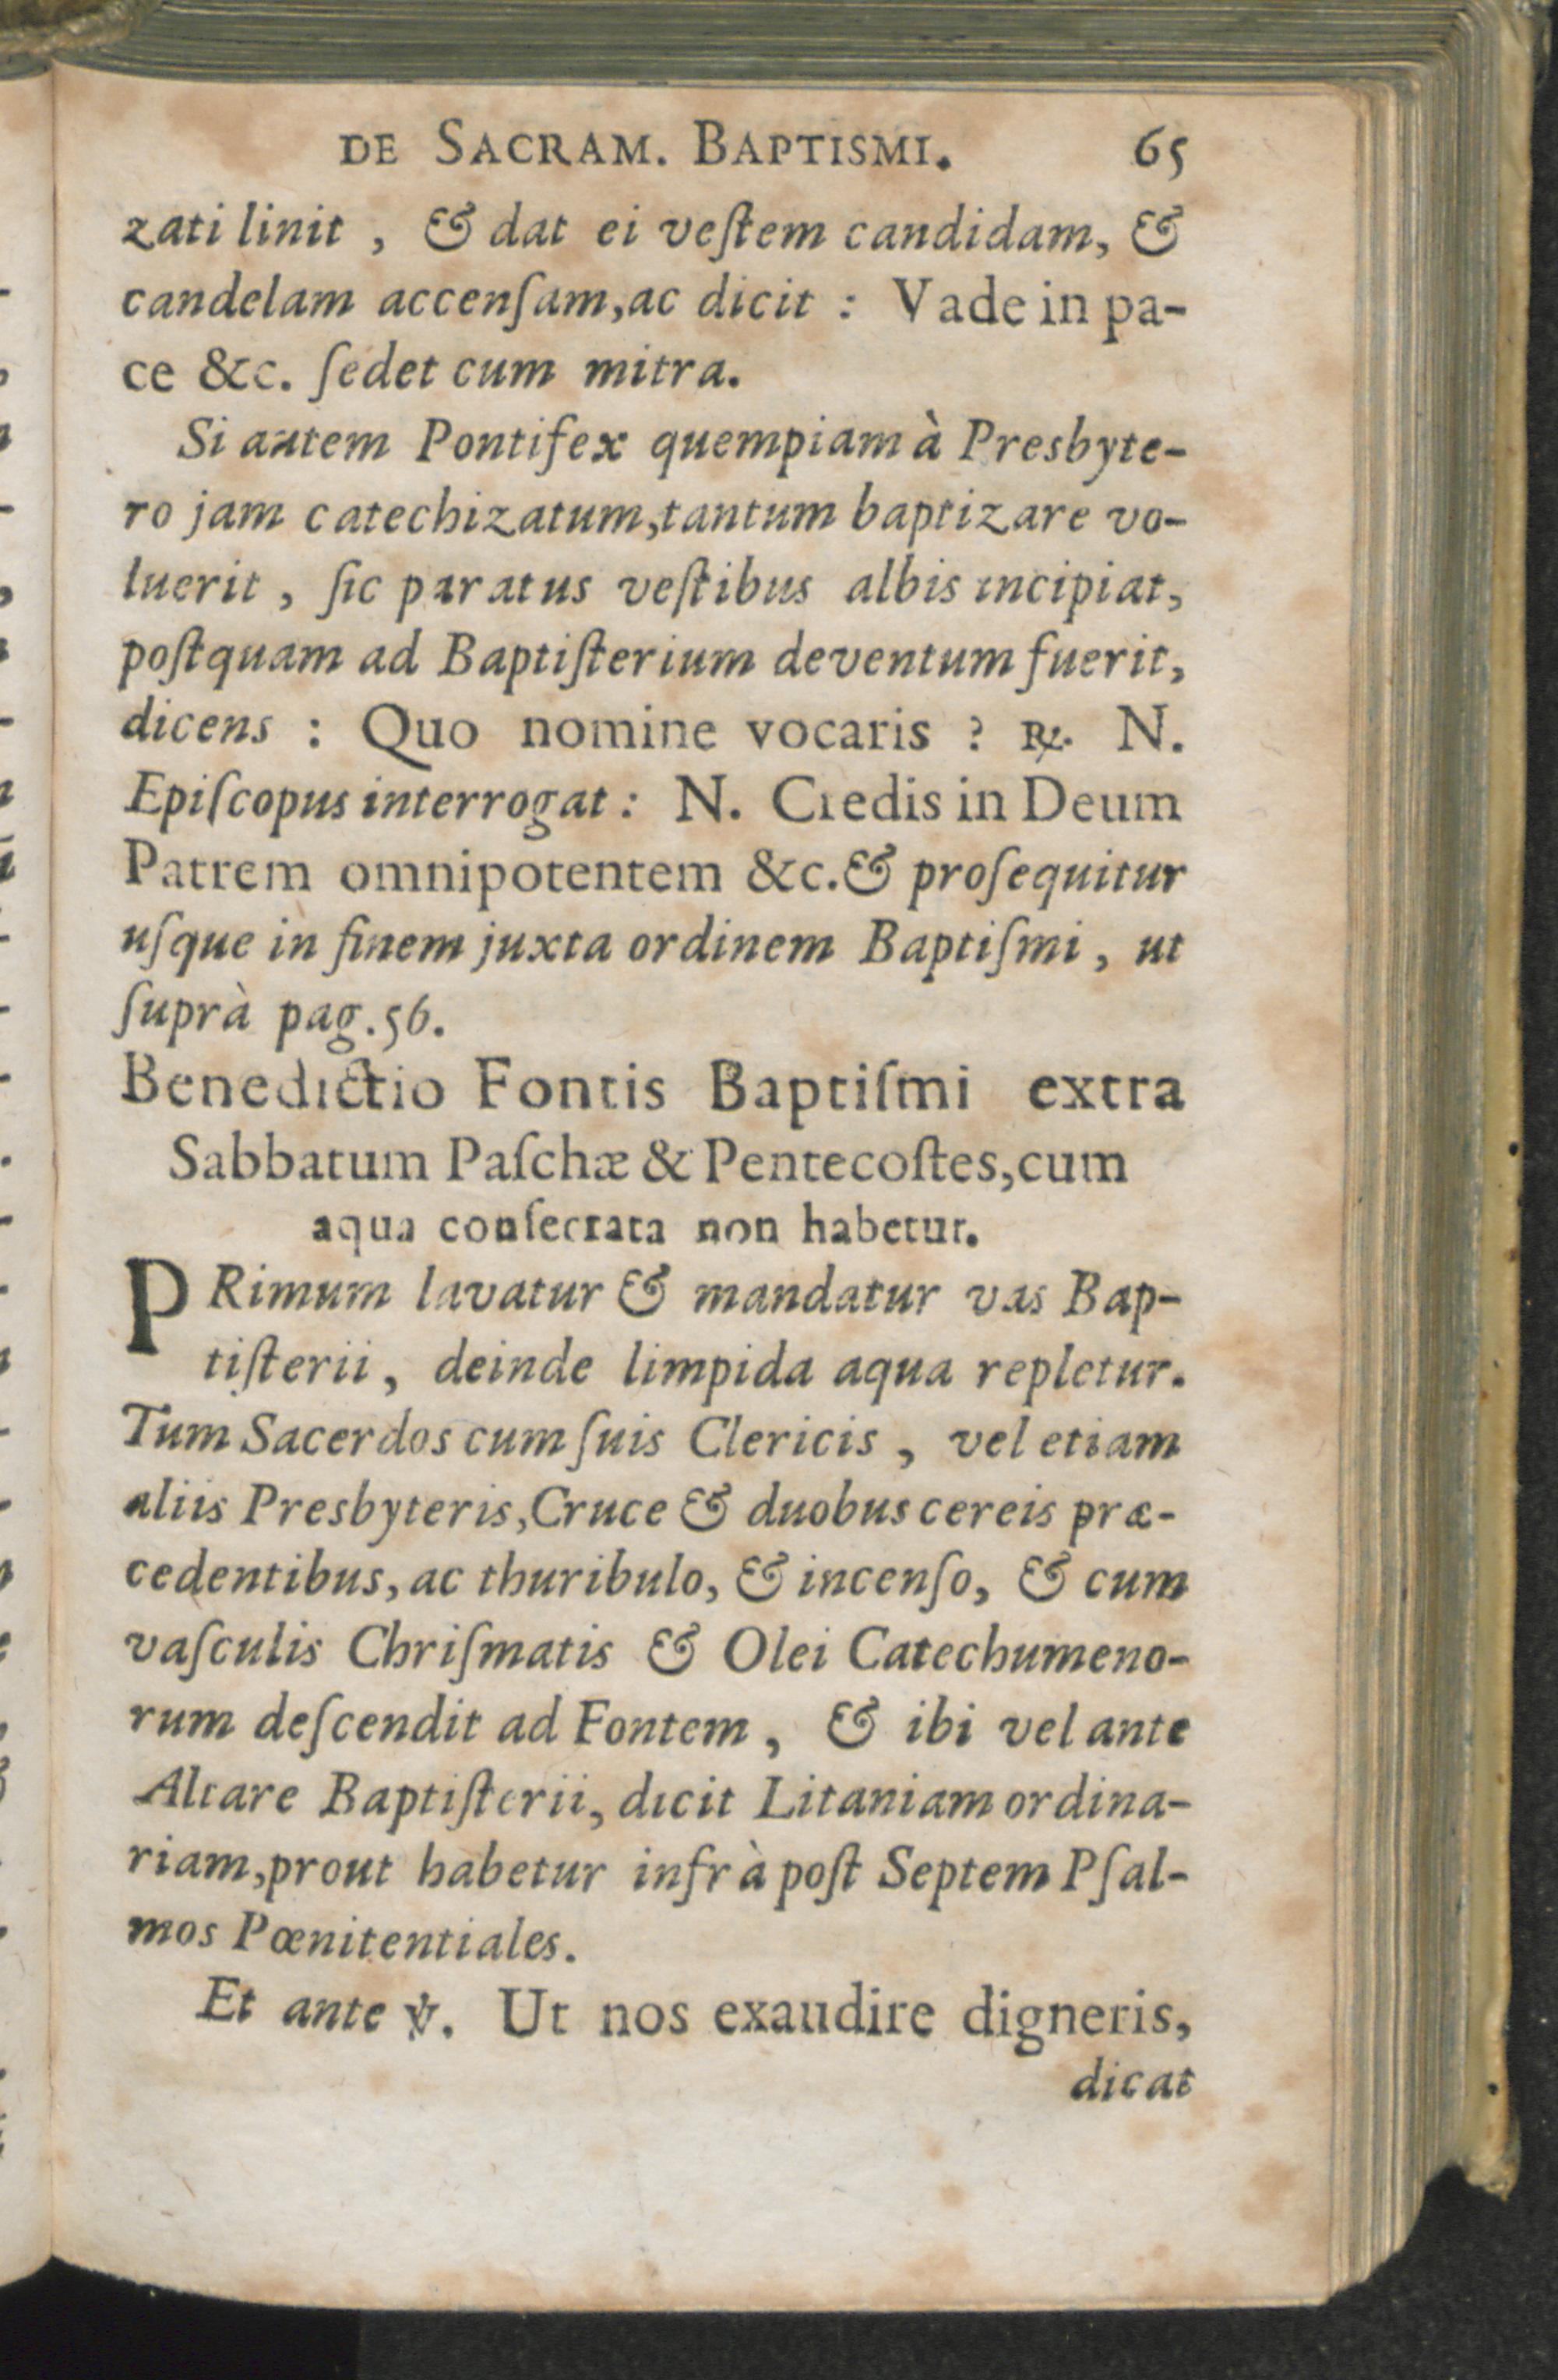 DE SACRAM. BAPTISMI. 65
zati linit, & dat ei veſtem candidam, &
candelam accenſam, ac dicit : Vade in pa-
ce &c. ſedet cum mitra.
Si autem Pontifex quempiam à Presbyte-
ro jam catechizatum, tantum baptizare vo-
luerit, ſic paratus veſtibus albis incipiat,
poſtquam ad Baptiſterium deventum fuerit,
dicens : Quo nomine vocaris ? ℟. N.
Epiſcopus interrogat : N. Credis in Deum
Patrem omnipotentem &c. & proſequitur
uſque in finem juxta ordinem Baptiſmi, ut
ſuprà pag. 56.
Benedictio Fontis Baptiſmi extra
Sabbatum Paſchæ & Pentecoſtes, cum
aqua conſecrata non habetur.
PRimum lavatur & mandatur vas Bap-
tiſterii, deinde limpida aqua repletur.
Tum Sacerdos cum ſuis Clericis, vel etiam
aliis Presbyteris, Cruce & duobus cereis præ-
cedentibus, ac thuribulo, & incenſo, & cum
vaſculis Chriſmatis & Olei Catechumeno-
rum deſcendit ad Fontem, & ibi vel ante
Altare Baptiſterii, dicit Litaniam ordina-
riam, prout habetur infrà poſt Septem Pſal-
mos Pœnitentiales.
Et ante ℣. Ut nos exaudire digneris,
dicat